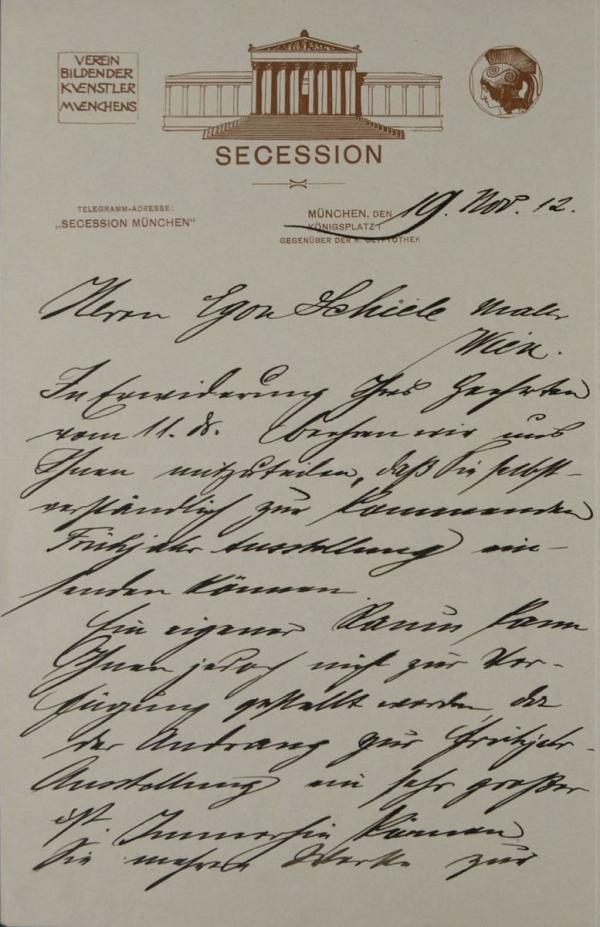 VEREIN
BILDENDER
KVENSTLER
MVENCHENS
SECESSION
TELEGRAMM-ADRESSE:
„SECESSION MÜNCHEN"
MÜNCHEN, DEN 19. Nov. 12.
KÖNIGSPLATZ 1
GEGENÜBER DER K. GLYPTOTHEK
Herrn Egon Schiele Maler
Wien.
In Erwiderung Ihres Geehrten
vom 11. ds. beehren wir uns
Ihnen mitzuteilen, daß Sie selbst-
verständlich zur kommenden
Frühjahr Ausstellung ein-
senden können.
Ein eigener Raum kann
Ihnen jedoch nicht zur Ver-
fügung gestellt werden, da
der Andrang zur Frühjahr-
Ausstellung ein sehr großer
ist. Immerhin können
Sie mehrere Werke zur